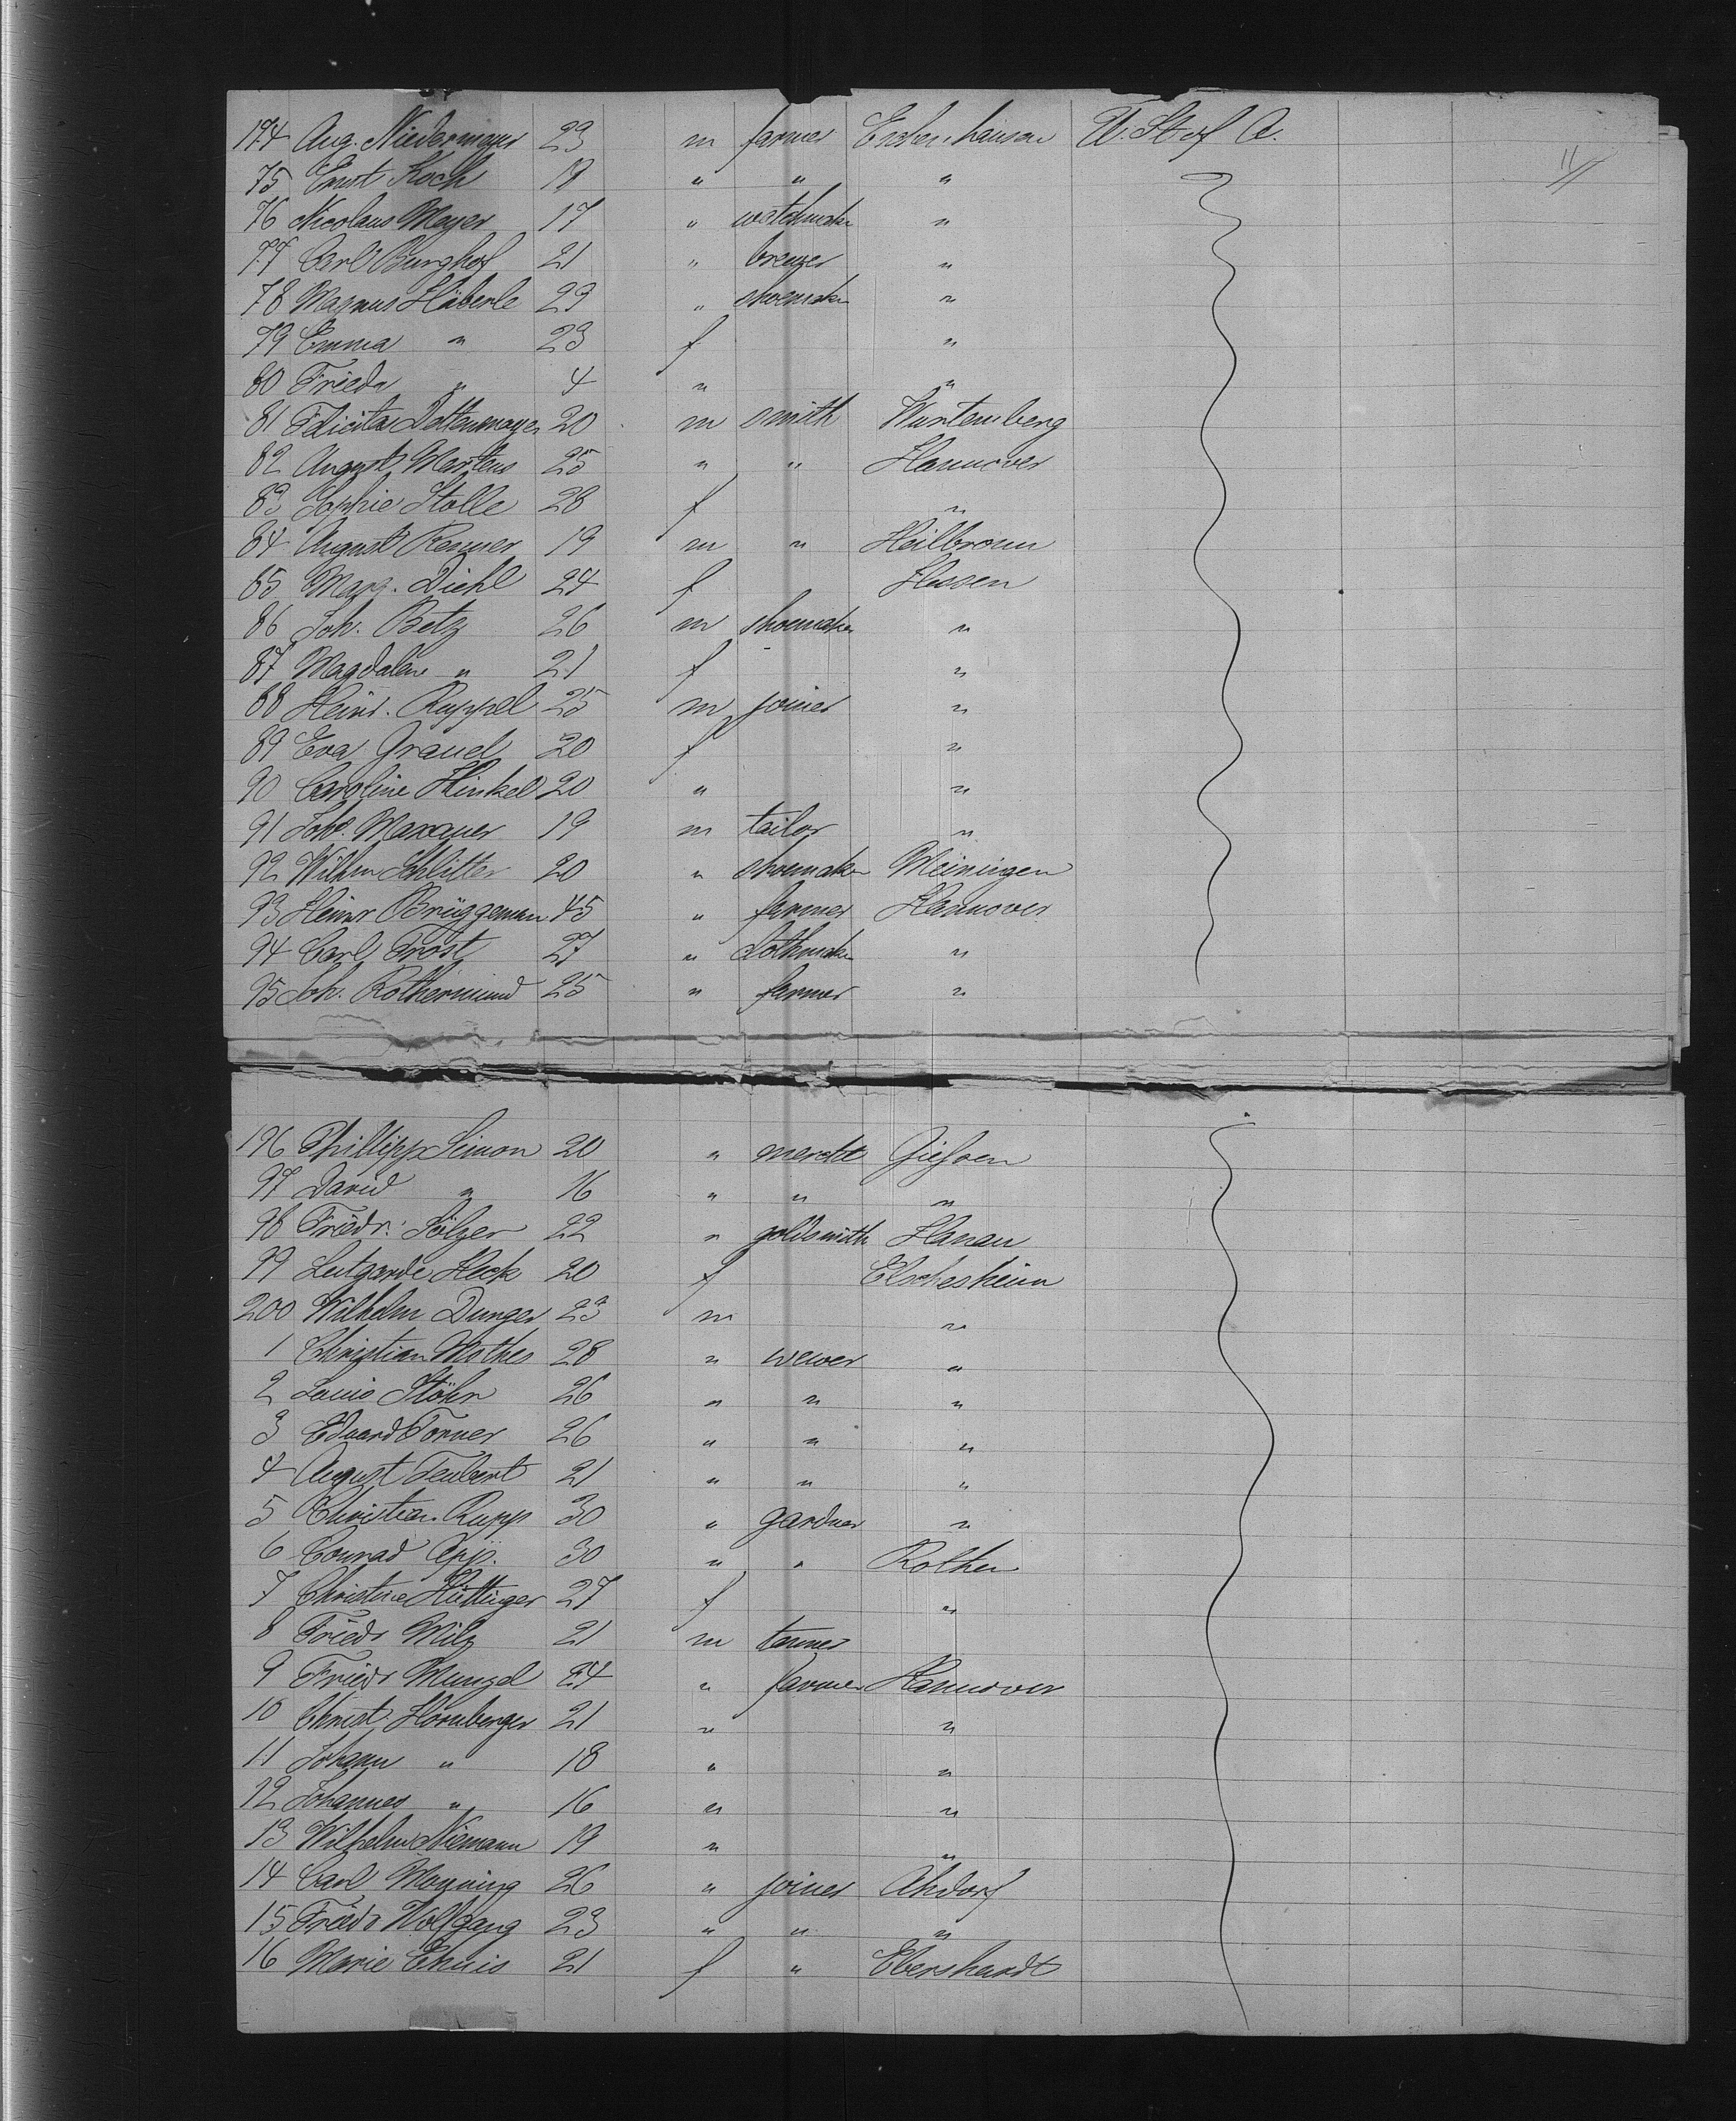 174 Aug. Niedermeyer 23 m farmer Erchenhausen U. St. of A.
11
75 Ernst Koch 18 " " "
76 Nicolaus Meyer 17 " watchmaker "
77 Carl Burghof 21 " brewer "
78 Magnus Häberle 29 " shoemaker "
79 Emma " 23 f "
80 Frieda " 4 " "
81 Felicitas Dottenmayer 20 m smith Wurtemberg
82 August Martens 25 " " Hannover
83 Sophie Stolle 28 f "
84 August Renner 19 m " Heilbronn
85 Marg. Diehl 24 f Hessen
86 Joh. Betz 26 m shoemaker "
87 Magdalene " 21 f "
88 Heinr. Ruppel 25 m joiner "
89 Eva Graud 20 f "
90 Caroline Hinkel 20 " "
91 Joh. Maxauer 19 m tailor "
92 Wilhm Schlitter 20 " shoemaker Meiningen
93 Heinr Brüggeman 45 " farmer Hannover
94 Carl Frost 27 " clothmaker "
95 Joh. Rothermund 25 " farmer "
196 Phillipp Simon 20 " mercht Giessen
97 David " 16 " " "
98 Friedr. Sölzer 22 " goldsmith Hanau
99 Lutgarde Heck 20 f Elschesheim
200 Wilhelm Dunger 23 m "
1 Christian Mothes 28 " wewer "
2 Louis Stöhr 26 " " "
3 Eduard Forner 26 " " "
4 August Teubert 21 " " "
5 Christian Rupp 30 " gardner "
6 Conrad Epp. 30 " " Rothen
7 Christine Hüttinger 27 f "
8 Friedr Milz 21 m tanner
9 Friedr Munzel 24 " farmer Hannover
10 Christ. Hornberger 21 " "
11 Johann " 18 " "
12 Johannes " 16 " "
13 Wilhelm Niemann 19 " "
14 Carl Monning 26 " joiner Ahdorf
15 Friedr Wolfgang 23 " " "
16 Marie Ehnis 21 f " Ebershardt